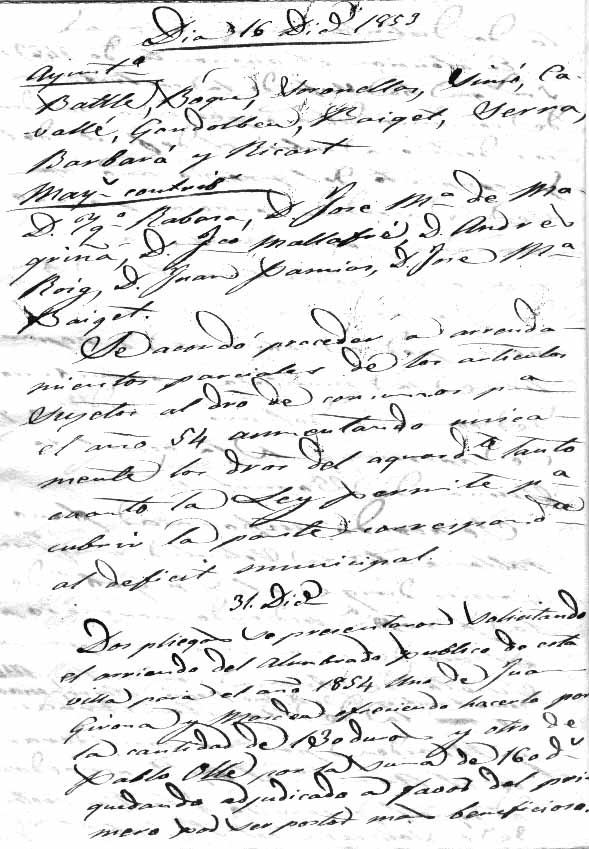 Dia 16 Dic.e 1853
Ayunt.o
Battle, Roque, Umanellas, Simó, Ca-
vallé, Gandolbeu, Baiget, Serra,
Barbará y Ricart
May.s contrib.s
D. Ygº Rabasa, D. Jose Mª de Ma-
griñá, D. Fco Mallafré, D. Andres
Roig, D. Juan Pamias, D. Jose Mª
Baiget.
Se acordó proceder a arrenda-
mientos parciales de los articulos
sujetos al dro de consumos pª
el año 54 aumentando unica-
mente los dros del aguardte tanto
cuanto la Ley permite pª
cubrir la parte correspondte
al deficit municipal.
31. Dice
Dos pliegos se presentaron solicitando
el arriendo del Alumbrado publico de esta
villa para el año 1854 Uno de Juan
Girona y ofreciendo hacerlo por
la cantidad de 130 duros y otro de
Pablo Ollé por la suma de 160 ds
quedando adjudicado a favor del pri-
mero por ser postor mas beneficioso.